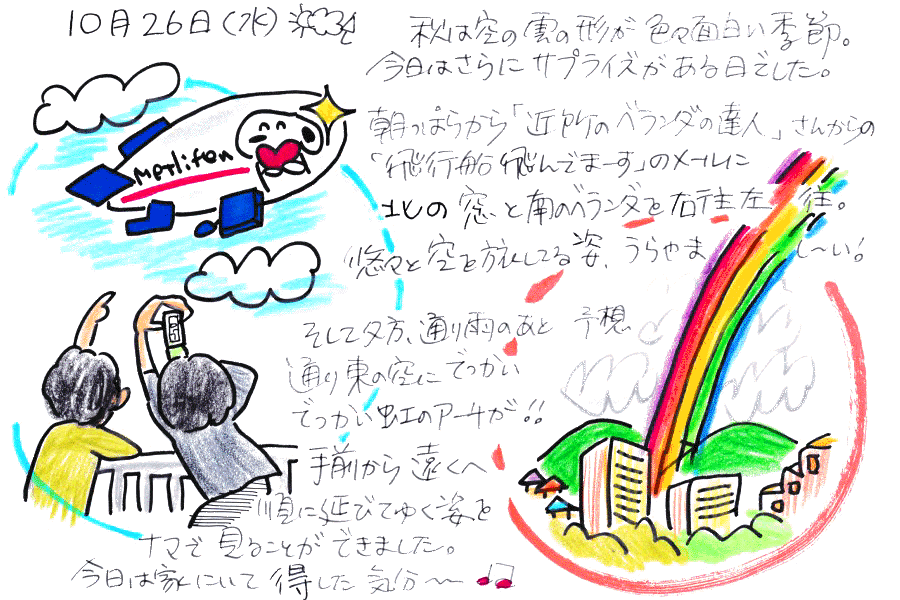 10月26日(水)
秋は空の雲の形が色々面白い季節。
今日はさらにサプライズがある日でした。
朝っぱらから「近所のベランダの達人」さんからの
「飛行船飛んでまーす」のメールに
北の窓と南のベランダを右往左往。
悠々と空を旅してる姿、うらやましーい!
MetLifen
そして夕方、通り雨のあと 予想
通り東の空にでっかい
でっかい虹のアーチが!!
手前から遠くへ
順に延びてゆく姿を
ナマで見ることができました。
今日は家にいて得した気分〜